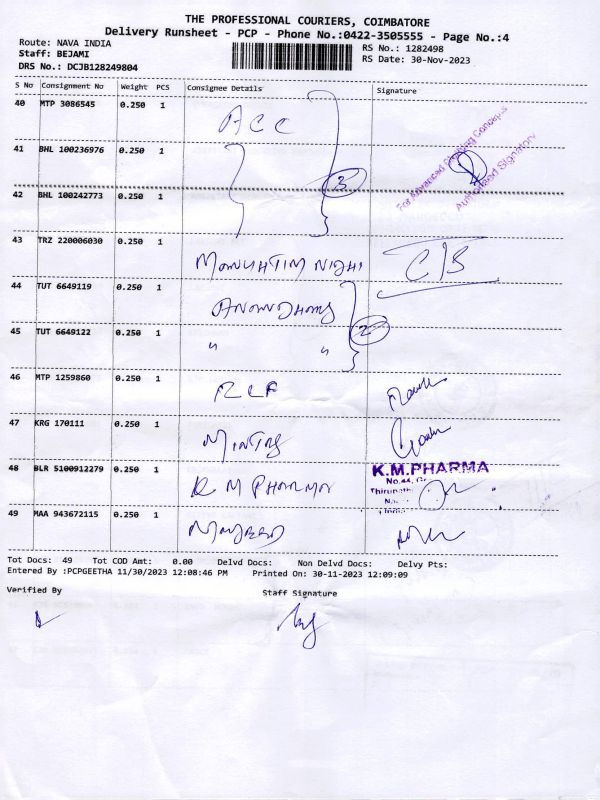 THE PROFESSIONAL COURIERS, COIMBATORE
Delivery Runsheet - PCP - Phone No.:0422-3505555 - Page No.:4
Route: NAVA INDIA
RS No.: 1282498
Staff: BEJAMI
RS Date: 30-Nov-2023
DRS No.: DCJB128249804
S No Consignment No Weight PCS Consignee Details Signature
40 MTP 3086545 0.250 1 ACC
For Advanced Clothing Concepts
Authorised Signatory
41 BHL 100236976 0.250 1
3
42 BHL 100242773 0.250 1
43 TRZ 220006030 0.250 1 C/S
44 TUT 6649119 0.250 1
2
45 TUT 6649122 0.250 1 " "
46 MTP 1259860 0.250 1
47 KRG 170111 0.250 1
48 BLR 5100912279 0.250 1 K M PHARMA K.M.PHARMA
No.44,
49 MAA 943672115 0.250 1
Tot Docs: 49 Tot COD Amt: 0.00 Delvd Docs: Non Delvd Docs: Delvy Pts:
Entered By :PCPGEETHA 11/30/2023 12:08:46 PM Printed On: 30-11-2023 12:09:09
Verified By Staff Signature